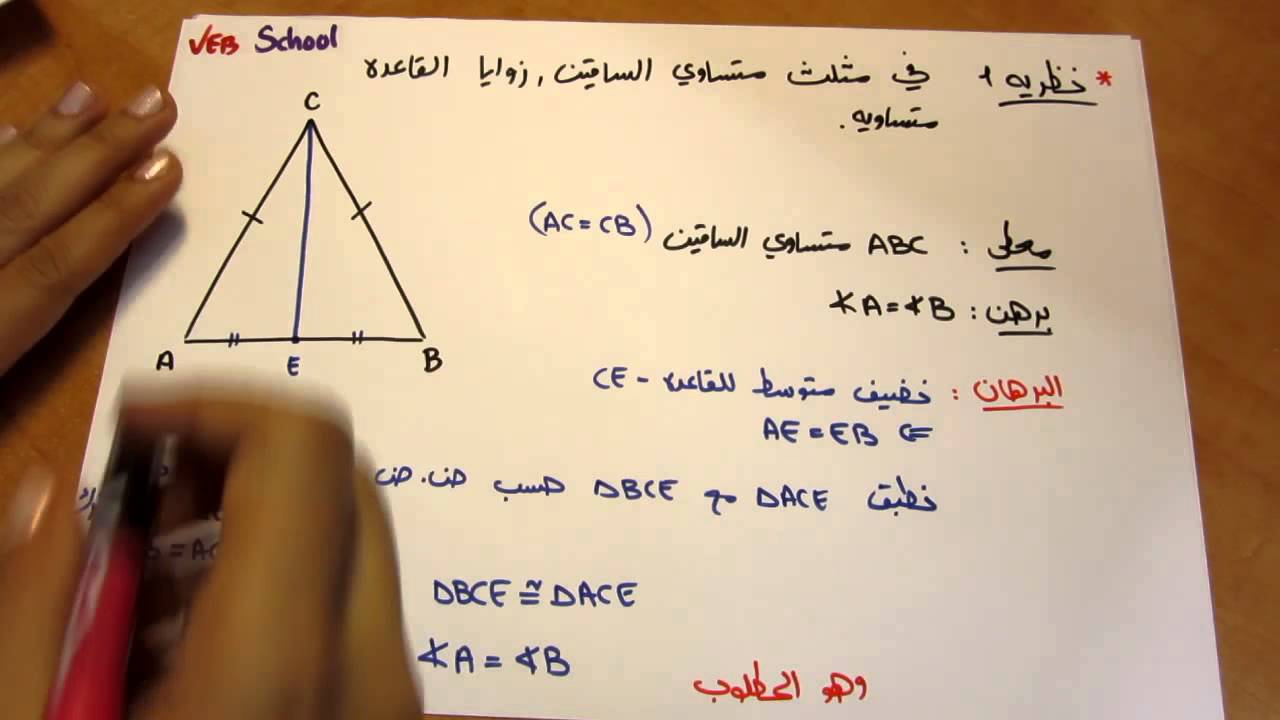 VEB School
* نظريه 1 في مثلث متساوي الساقين, زوايا القاعده
متساويه.
C
A
E
B
معطى : ABC متساوي الساقين (AC=CB)
برهن : ∢A=∢B
البرهان : نضيف متوسط للقاعده - CE
⇐ AE=EB
نطبق DACE مع DBCE حسب ض.ض
DBCE ≅ DACE
∢A = ∢B
وهو المطلوب